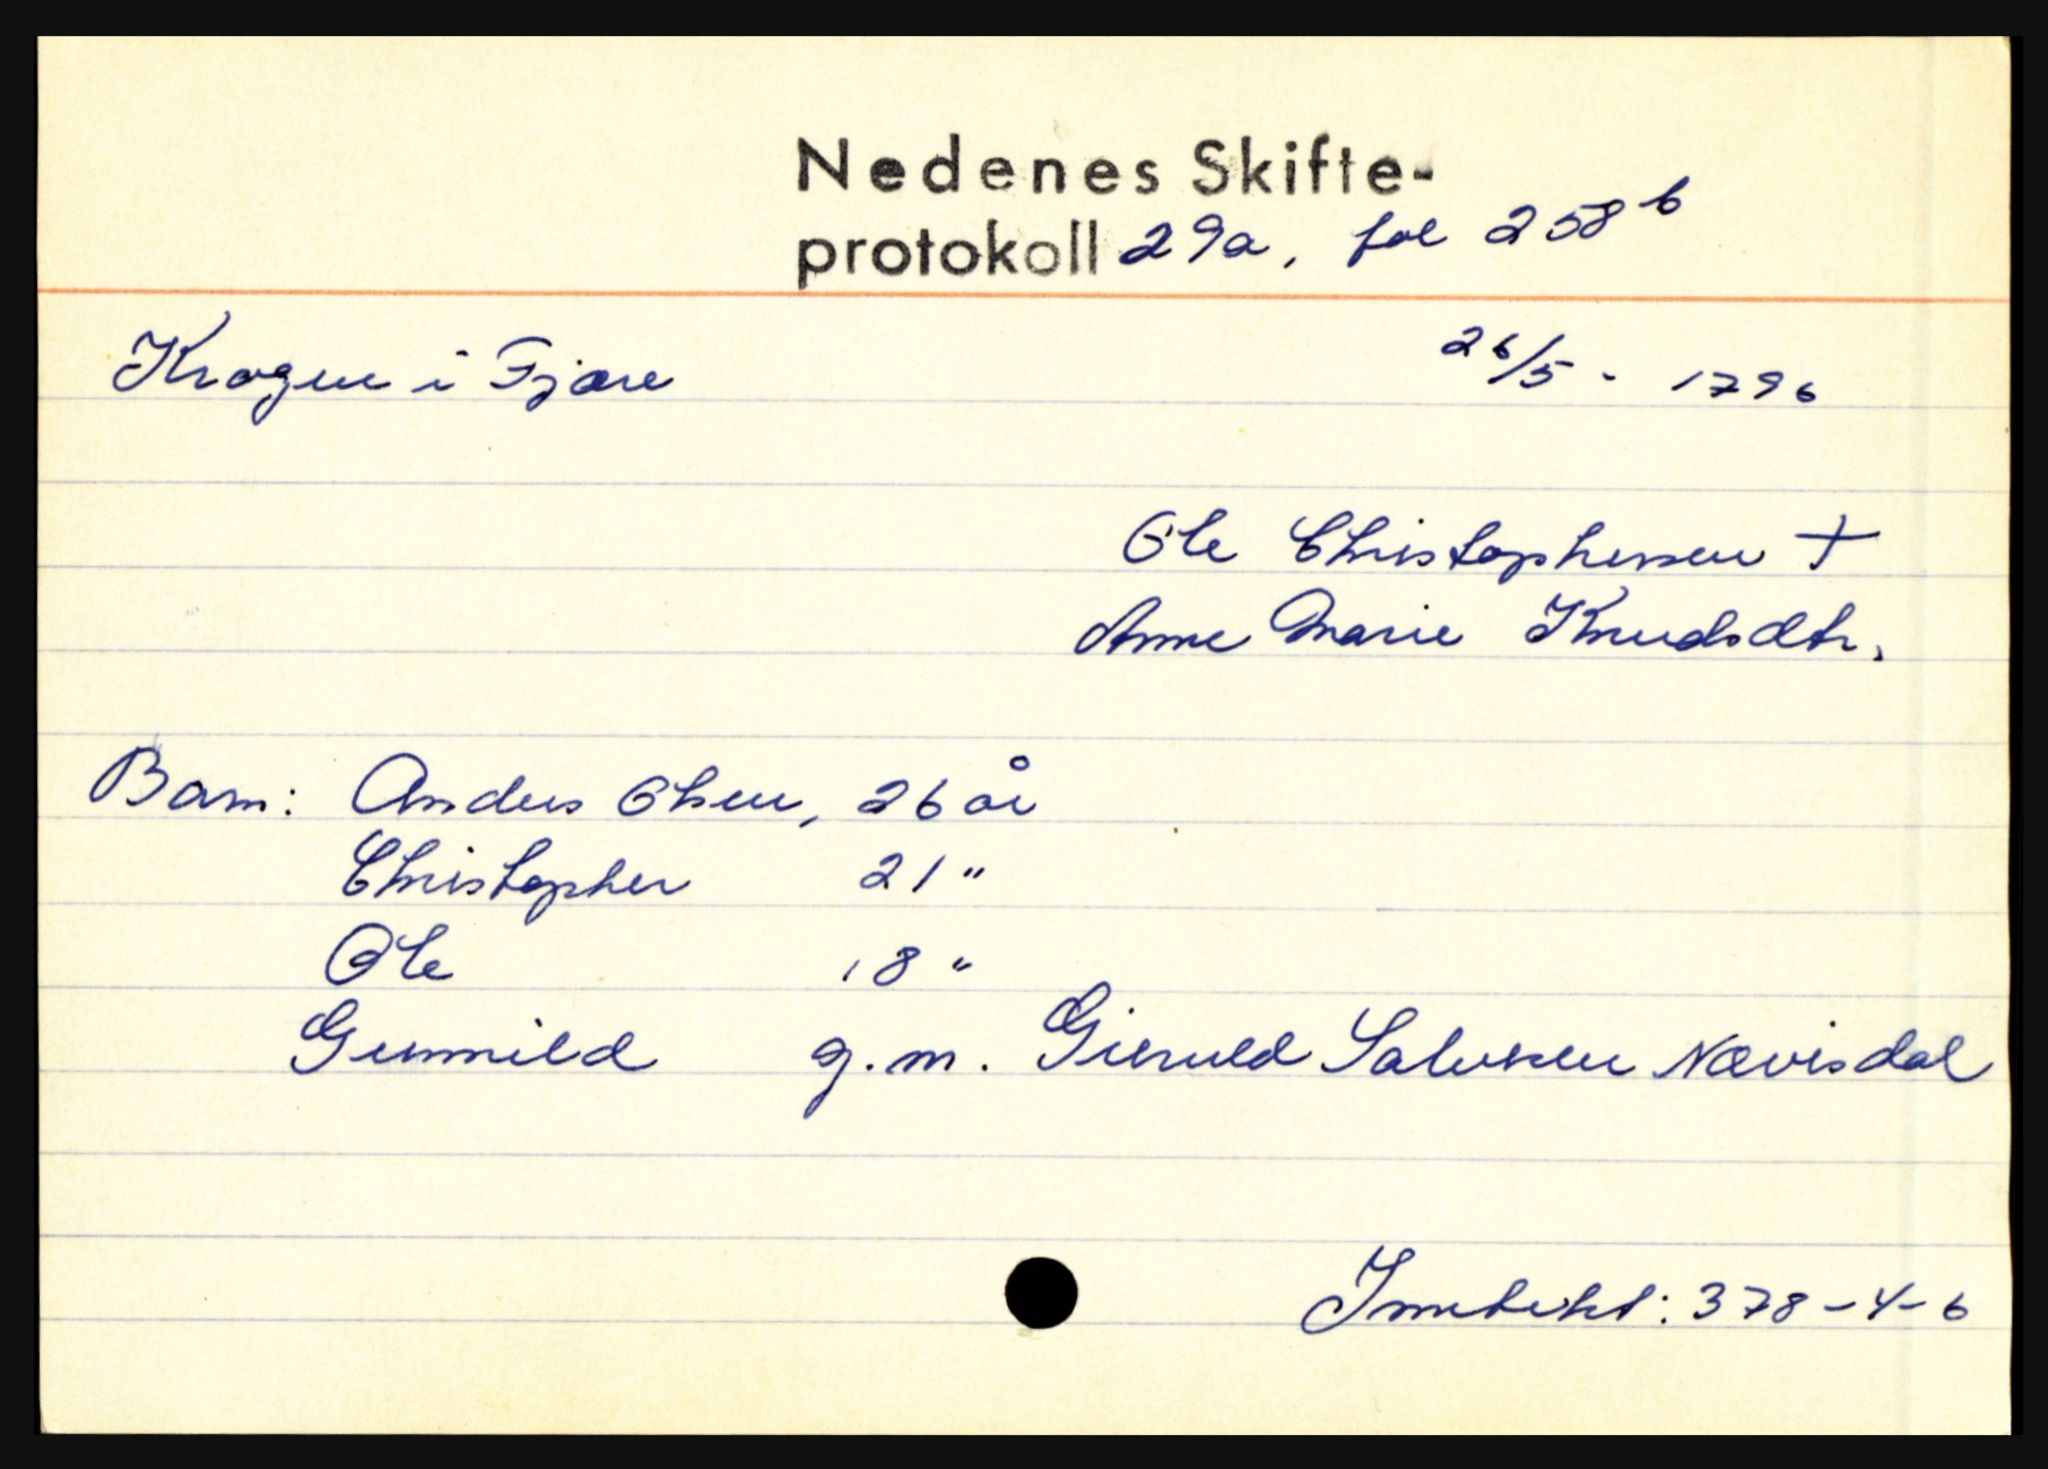 Nedenes Skifte-
protokoll 29a, fol 258 b
Krogen i Fjære
26/5 - 1796
Ole Christophersen +
Anne Marie Knudsdtr.
Barn: Anders Olsen, 26 år
Christopher 21 "
Ole 18 "
Gunnild g.m. Gieruld Salvesen Nævisdal
Inntekt: 378-4-6